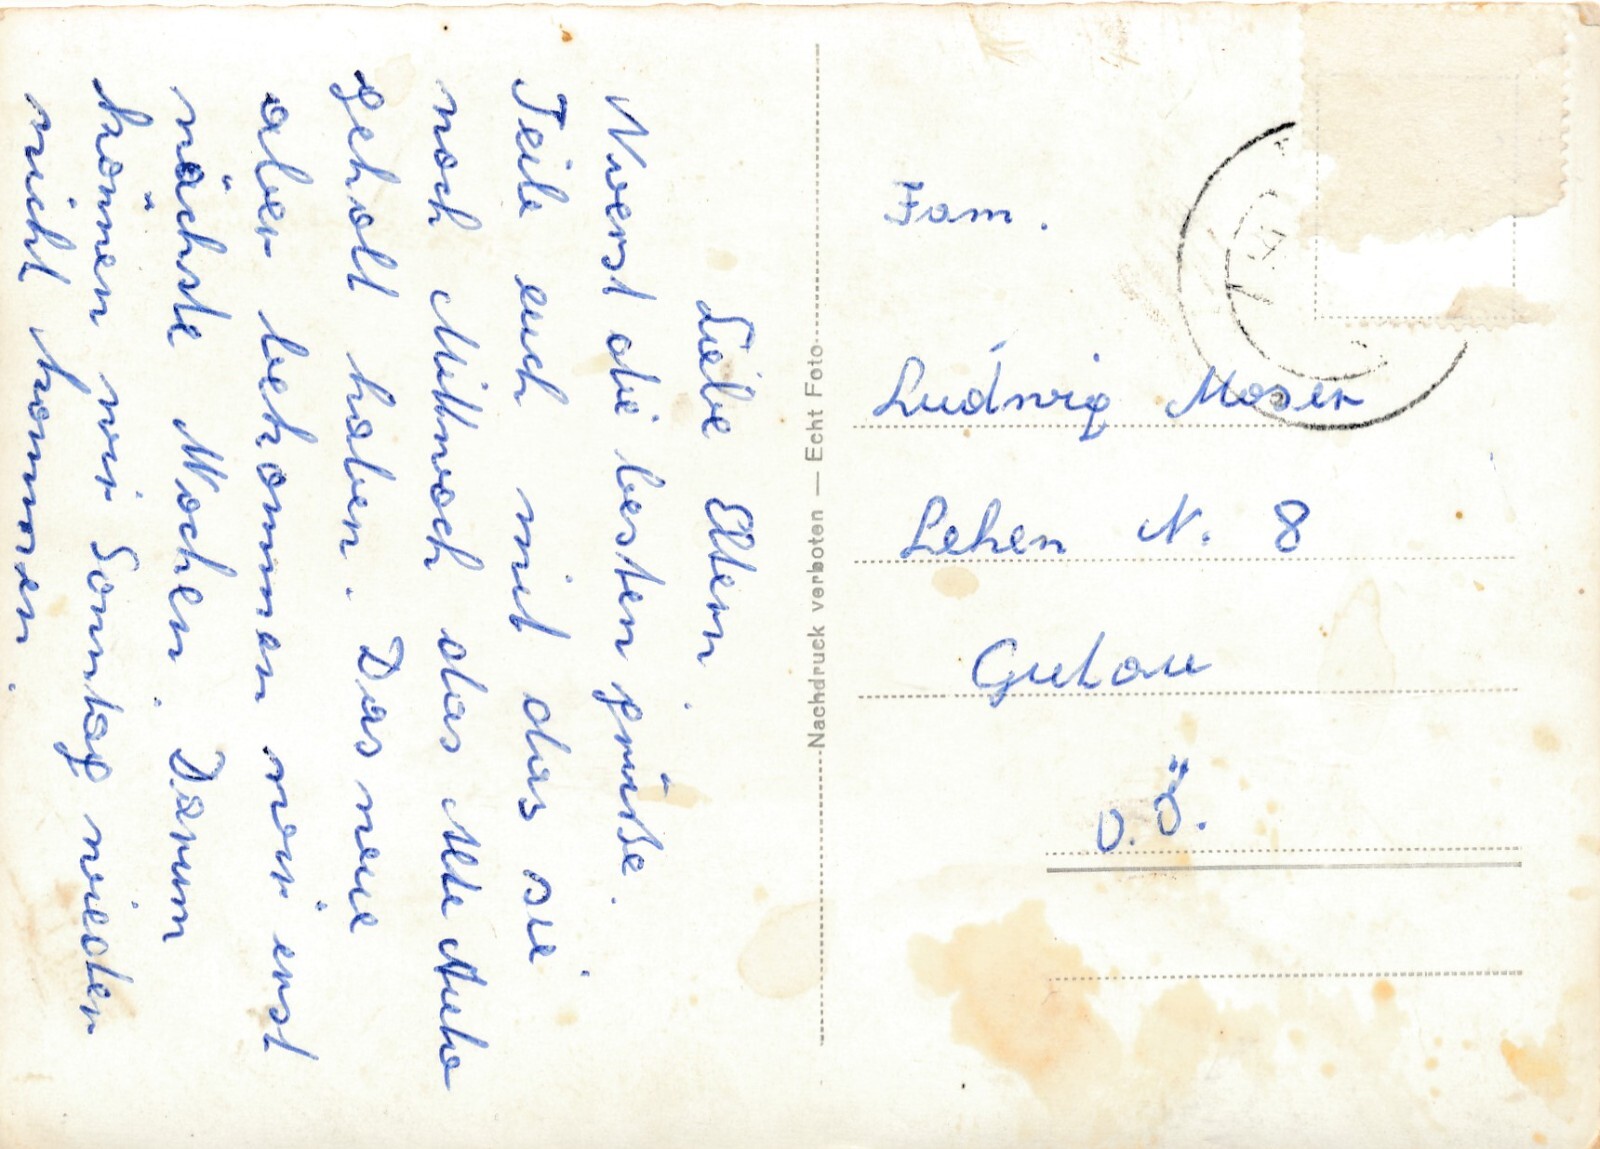 Liebe Eltern.
Vorerst die besten grüße.
Teile euch mit das sie
noch Mittwoch das Alte Auto
geholt haben. Das neue
aber bekommen wir erst
nächste Wochen. Darum
können wir Sonntag wieder
nicht kommen.
Nachdruck verboten — Echt Foto
Fam.
Ludwig Moser
Lehen N. 8
Gutau
O.Ö.